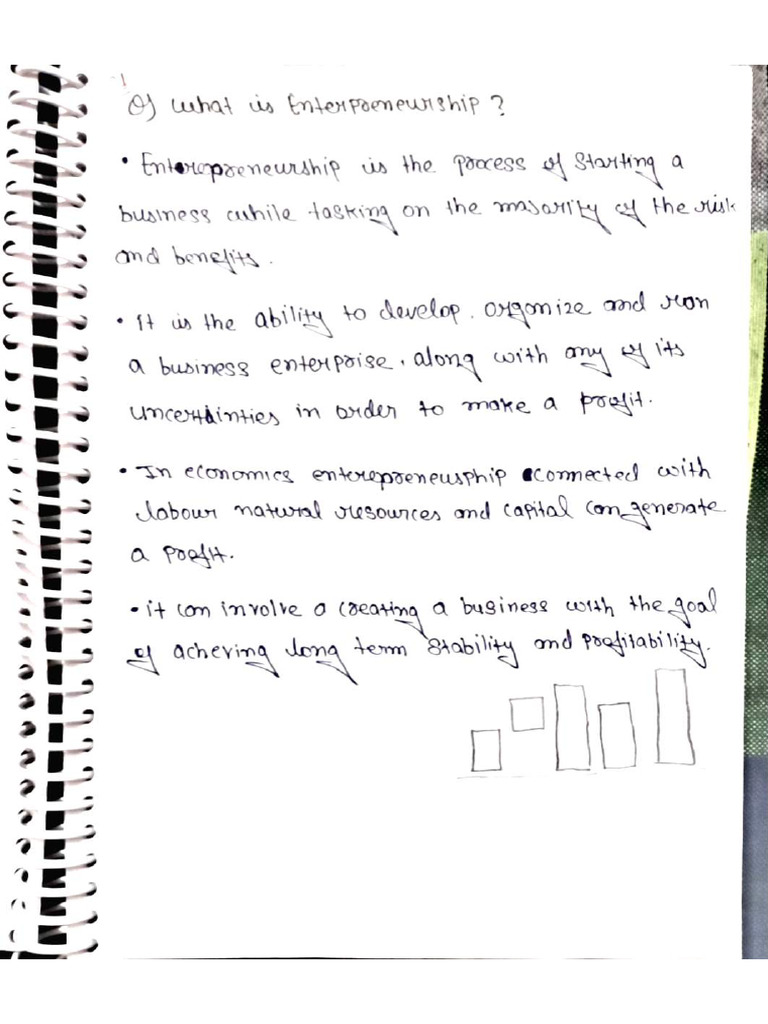 Q) What is Enterpreneurship?
• Enterepreneurship is the process of starting a
business while tasking on the majority of the risk
and benefits.
• It is the ability to develop, organize and run
a business enterprise, along with any of its
uncertainties in order to make a profit.
• In economics enterepreneusphip connected with
labour natural resources and capital can generate
a profit.
• it can involve a creating a business with the goal
of acheving long term stability and profitability.